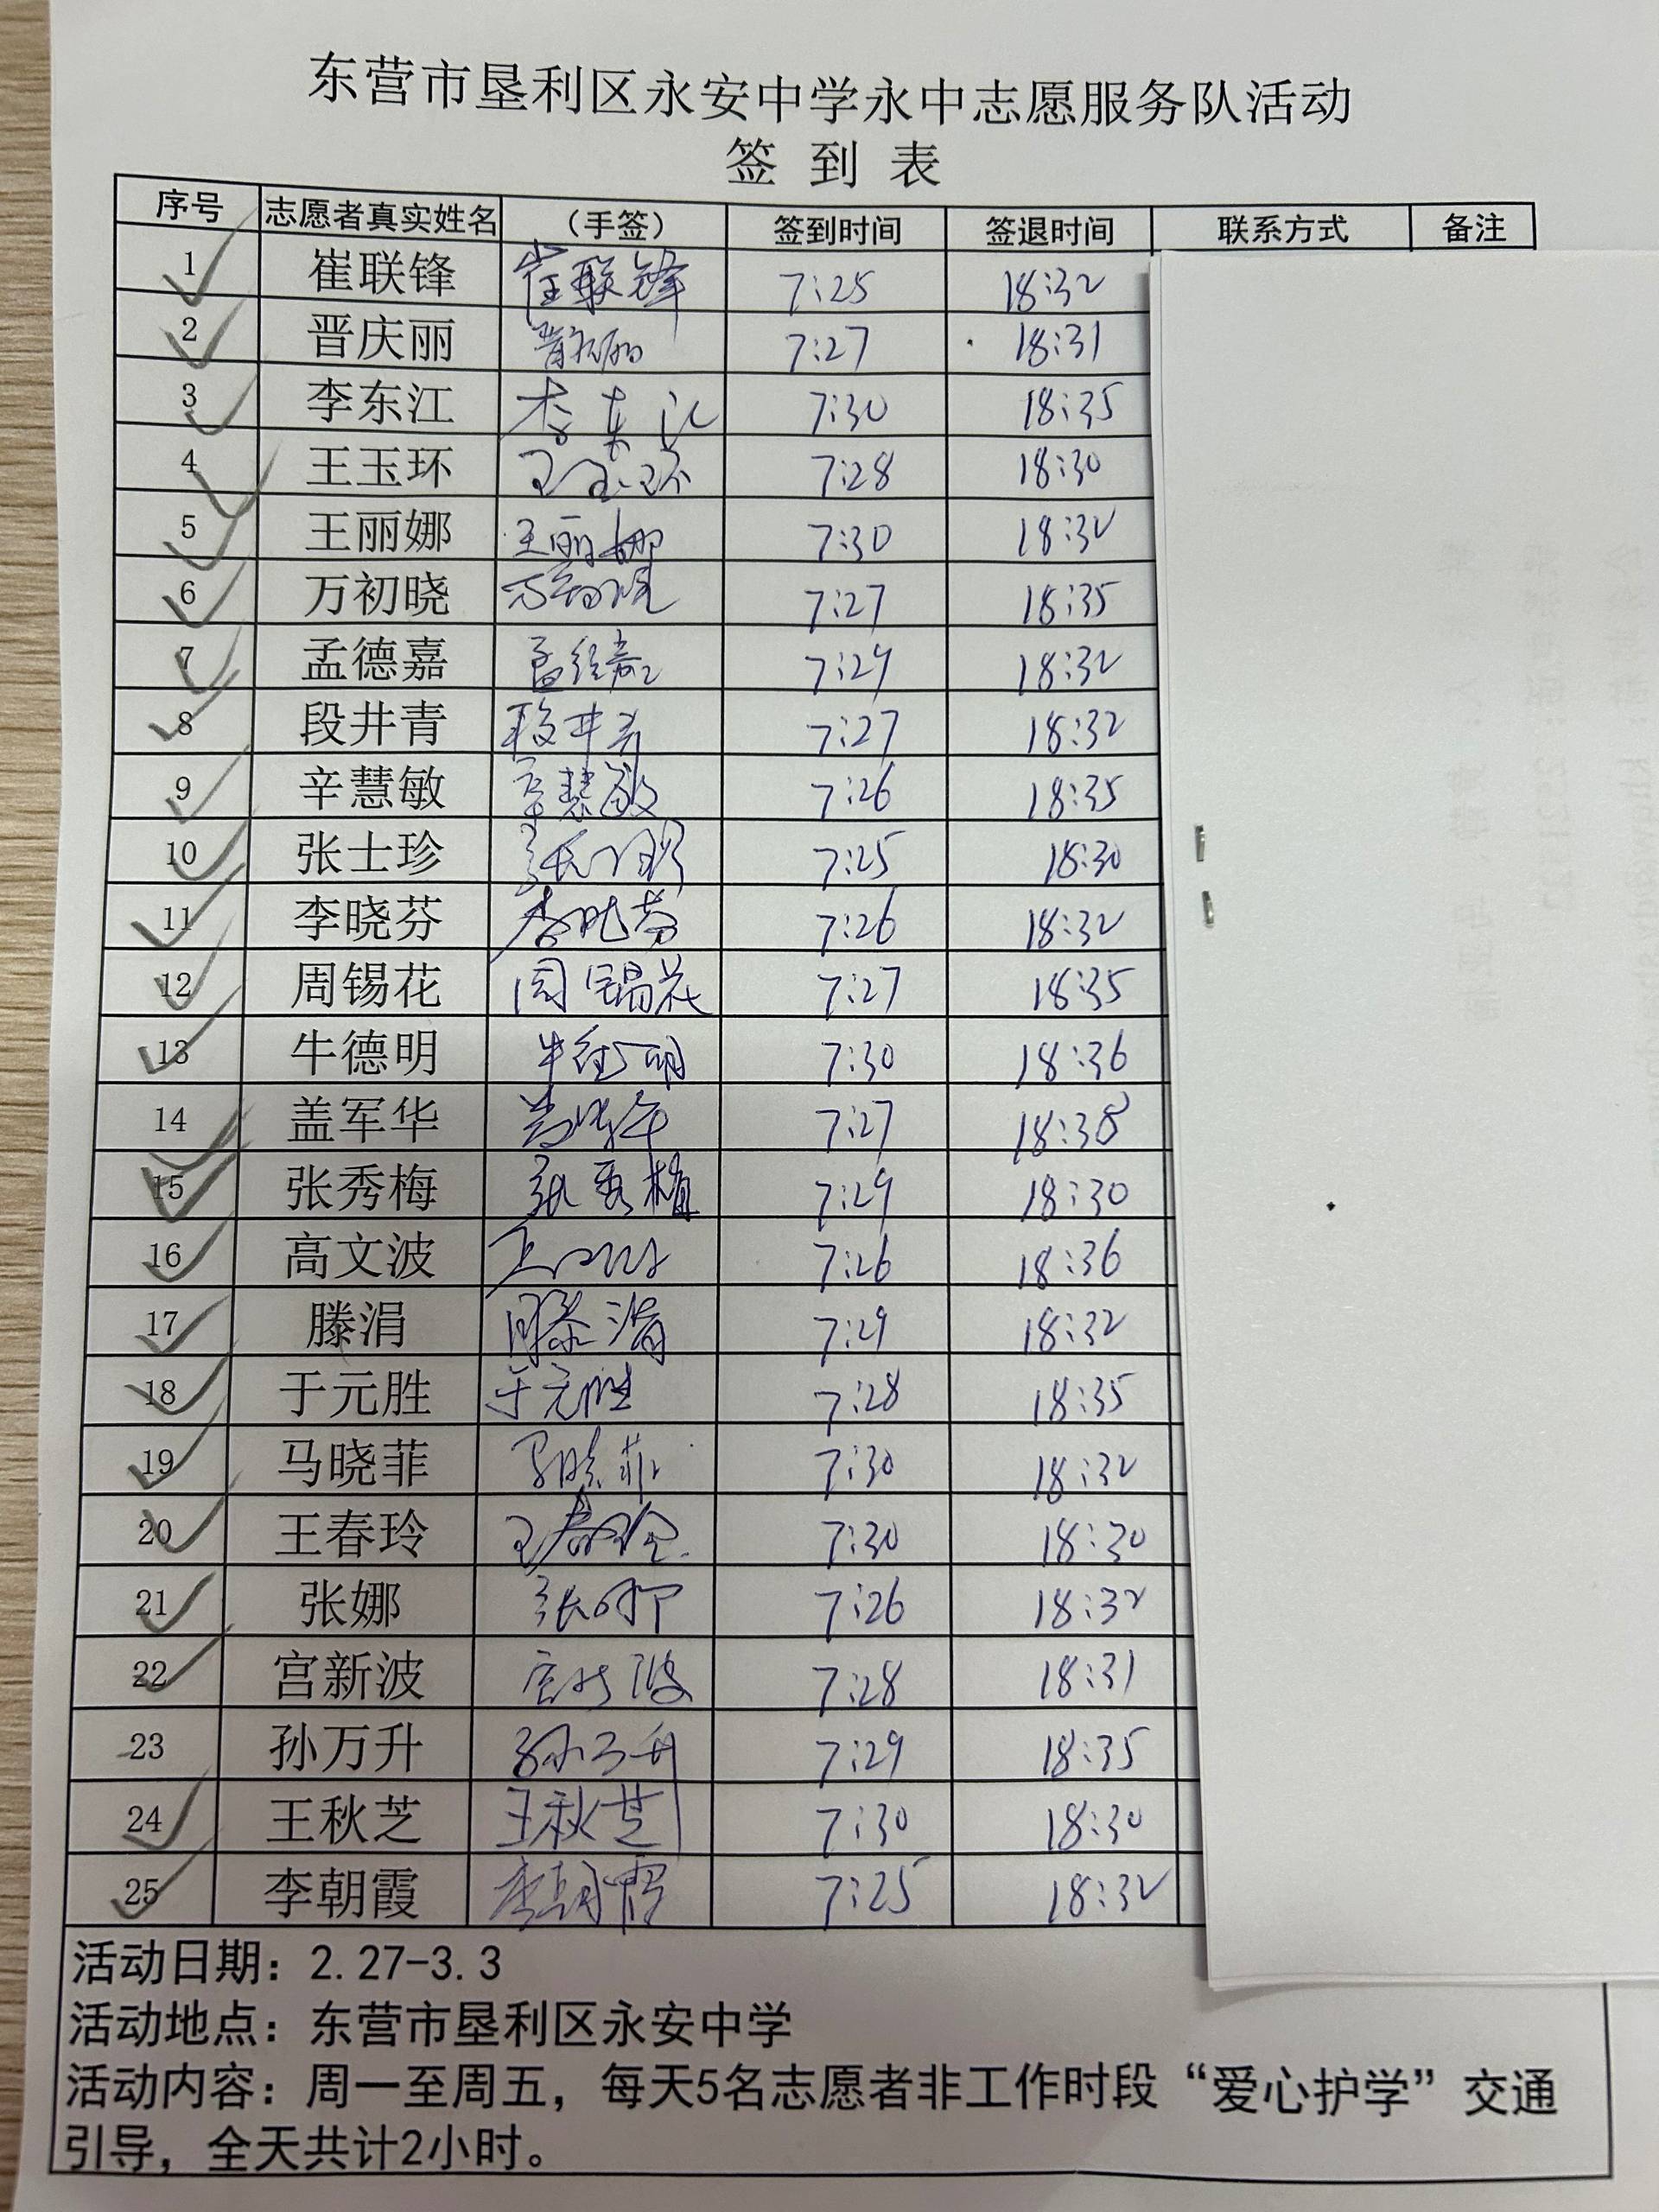 东营市垦利区永安中学永中志愿服务队活动
签 到 表
序号 志愿者真实姓名 （手签） 签到时间 签退时间 联系方式 备注
1 崔联锋 崔联锋 7:25 18:32
2 晋庆丽 晋庆丽 7:27 18:31
3 李东江 李东江 7:30 18:35
4 王玉环 王玉环 7:28 18:30
5 王丽娜 王丽娜 7:30 18:32
6 万初晓 万初晓 7:27 18:35
7 孟德嘉 孟德嘉 7:29 18:32
8 段井青 段井青 7:27 18:32
9 辛慧敏 辛慧敏 7:26 18:35
10 张士珍 张士珍 7:25 18:30
11 李晓芬 李晓芬 7:26 18:32
12 周锡花 周锡花 7:27 18:35
13 牛德明 牛德明 7:30 18:36
14 盖军华 盖军华 7:27 18:38
15 张秀梅 张秀梅 7:29 18:30
16 高文波 7:26 18:36
17 滕涓 滕涓 7:29 18:32
18 于元胜 于元胜 7:28 18:35
19 马晓菲 马晓菲 7:30 18:32
20 王春玲 王春玲 7:30 18:30
21 张娜 张娜 7:26 18:32
22 宫新波 宫新波 7:28 18:31
23 孙万升 孙万升 7:29 18:35
24 王秋芝 王秋芝 7:30 18:30
25 李朝霞 李朝霞 7:25 18:32
活动日期：2.27-3.3
活动地点：东营市垦利区永安中学
活动内容：周一至周五，每天5名志愿者非工作时段“爱心护学”交通
引导，全天共计2小时。